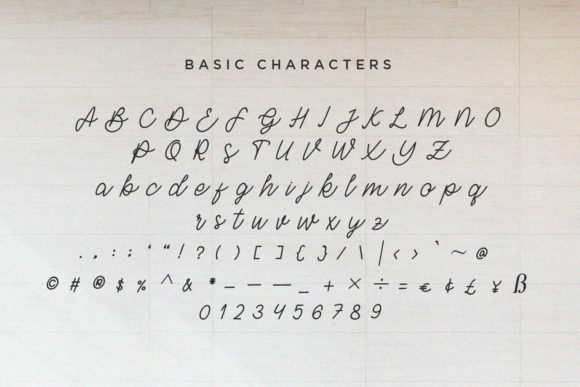 BASIC CHARACTERS
A B C D E F G H I J K L M N O
P Q R S T U V W X Y Z
a b c d e f g h i j k l m n o p q
r s t u v w x y z
. , : ; ‘ “ ! ? ( ) [ ] { } / \ | < > ` ~ @
© # ® $ % ^ & * – — — _ + × ÷ = € ¢ £ ¥ ß
0 1 2 3 4 5 6 7 8 9